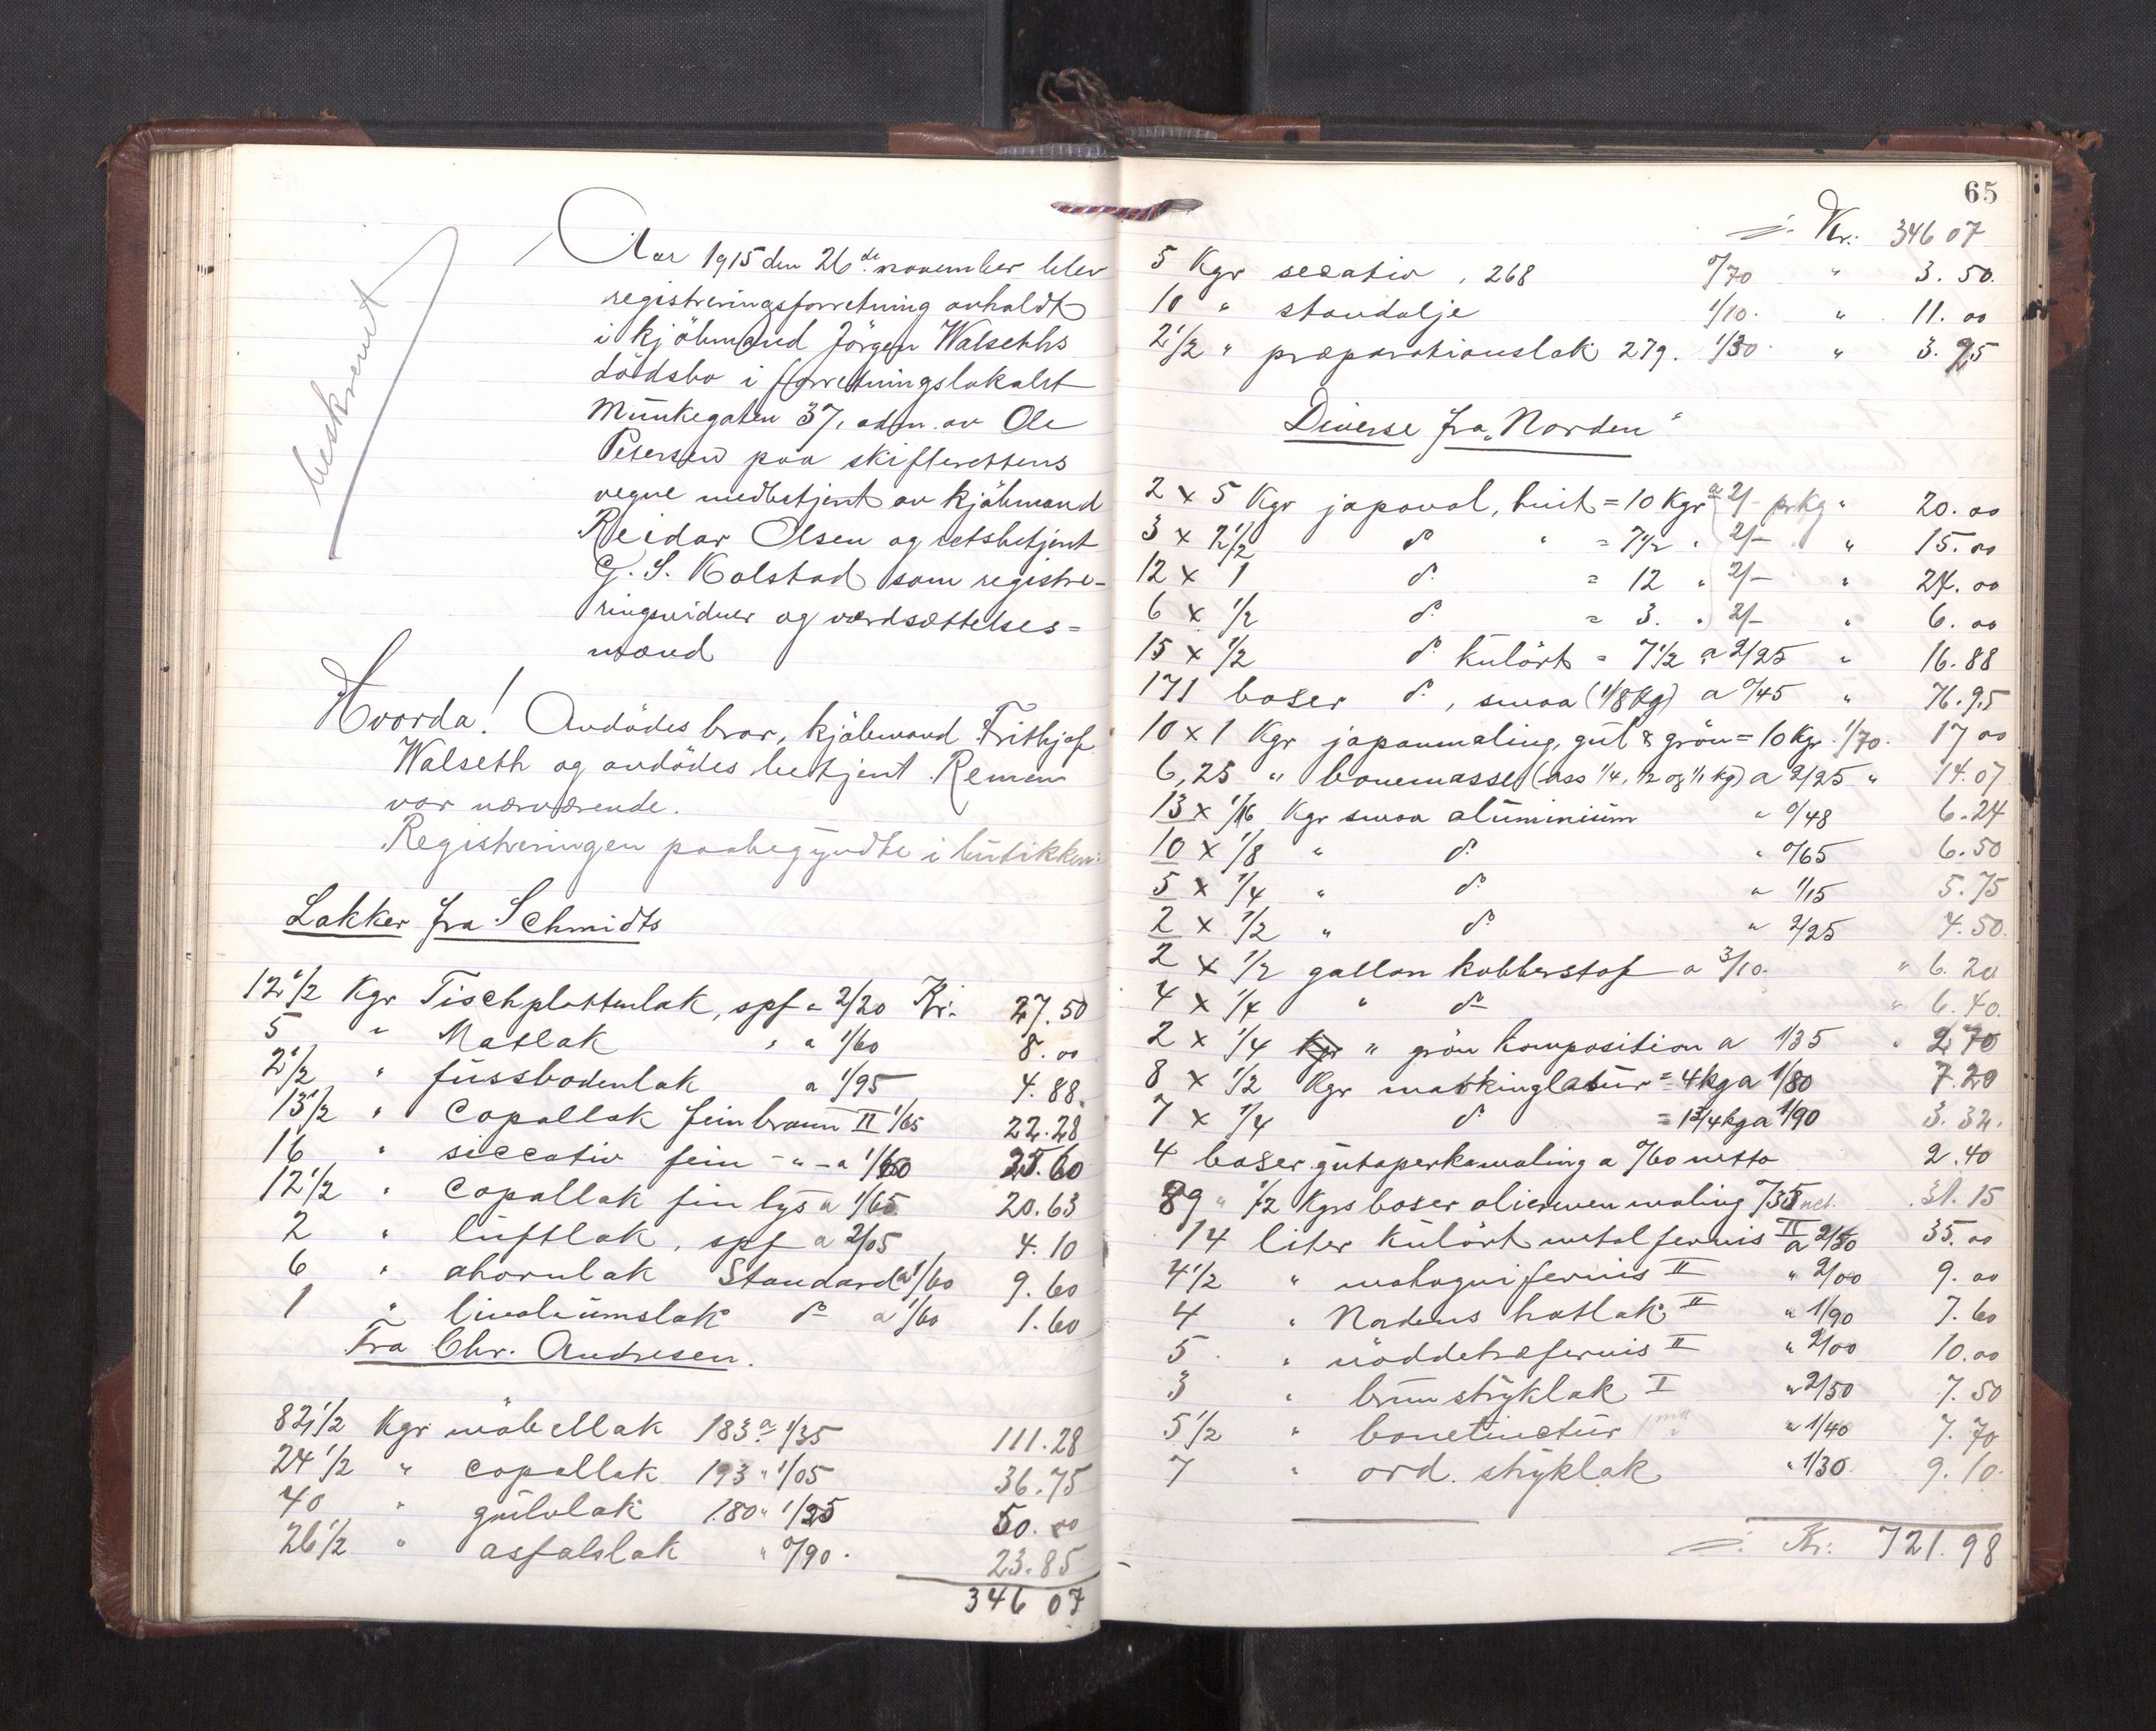 beskrevet
Aar 1915 den 26de november blev
registreringsforretning avholdt
i kjöbmand Jörgen Walseths
dödsbo i forretningslokalet
Munkegaten 37, adm. av Ole
Petersen paa skifterettens
vegne medbetjent av kjöbmand
Reidar Olsen og retsbetjent
G. S. Kolstad som registre-
ringsvidner og værdsættelses=
mænd
Hvorda! Avdödes bror, kjöbmand Frithjof
Walseth og avdödes betjent Remen
var nærværende.
Registreringen paabegyndte i butikken:
Lakker fra Schmidts
12 1/2 Kgr Tischplattenlak, spf a 2/20 Kr. 27.50
5 " Matlak " a 1/60 8.00
2 1/2 " fussbodenlak a 1/95 4.88
13 1/2 " Copallak feinbraun II 1/65 22.28
16 " siccativ fein - " - a 1/60 25.60
12 1/2 " Copallak fin lys a 1/65 20.63
2 " luftlak, spf a 2/05 4.10
6 " ahornlak Standard a 1/60 9.60
1 " linoleumslak do a 1/60 1.60
Fra Chr. Andresen.
82 1/2 Kgr möbellak 183 a 1/35 111.28
24 1/2 " copallak 193 " 1/05 36.75
40 " gulvlak 180 " 1/25 50.00
26 1/2 " asfaltlak " 0/90. 23.85
346 07
65
Kr: 346 07
5 Kgr secativ, 268 0/70 " 3.50.
10 " standolje 1/10. " 11.00
2 1/2 " præparationslak 279. 1/30 " 3.25
Diverse fra "Norden"
2 x 5 Kgr japanol, hvit = 10 Kgr a 2/- pr kg " 20.00
3 x 2 1/2 do " = 7 1/2 " 2/- " 15.00
12 x 1 do = 12 " 2/- " 24.00
6 x 1/2 do = 3. " 2/- " 6.00
15 x 1/2 do kulört = 7 1/2 a 2/25 " 16.88
171 boser do, smaa (1/8 kg) a 0/45 " 76.95
10 x 1 Kgr japanmaling, gul & grön = 10 Kgr. 1/70. 17 00
6,25 " bonemasse (ass 1/4, 1/2 og 1/1 kg) a 2/25 " 14.07
13 x 1/16 Kgr smaa aluminium " 0/48 6.24
10 x 1/8 " do " 0/65 6.50
5 x 1/4 " do " 1/15 5.75
2 x 1/2 " do " 2/25 4.50.
2 x 1/2 gallon kobberstof a 3/10. " 6.20
4 x 1/4 " do " 6.40.
2 x 1/4 Kgr " grön komposition a 1/35 " 2.70
8 x 1/2 Kgr = 4 kg a 1/80 7.20
7 x 1/4 do = 1 3/4 kg a 1/90 3.32.
4 boser gutaperkamaling a 0/60 netto 2.40
89 " 1/2 Kgrs boser maling 0/35 net. 31.15
14 liter kulört metalfernis II a 2/50 35.00
4 1/2 " mahognifernis II " 2/00 9.00
4 " Nordens hatlak II " 1/90 7.60
5 " nöddetræfernis II " 2/00 10.00
3 " brun stryklak I " 2/50 7.50
5 1/2 " bonetinctur 1ma " 1/40 7.70
7 " ord. stryklak " 1/30. 9.10.
Kr: 721.98